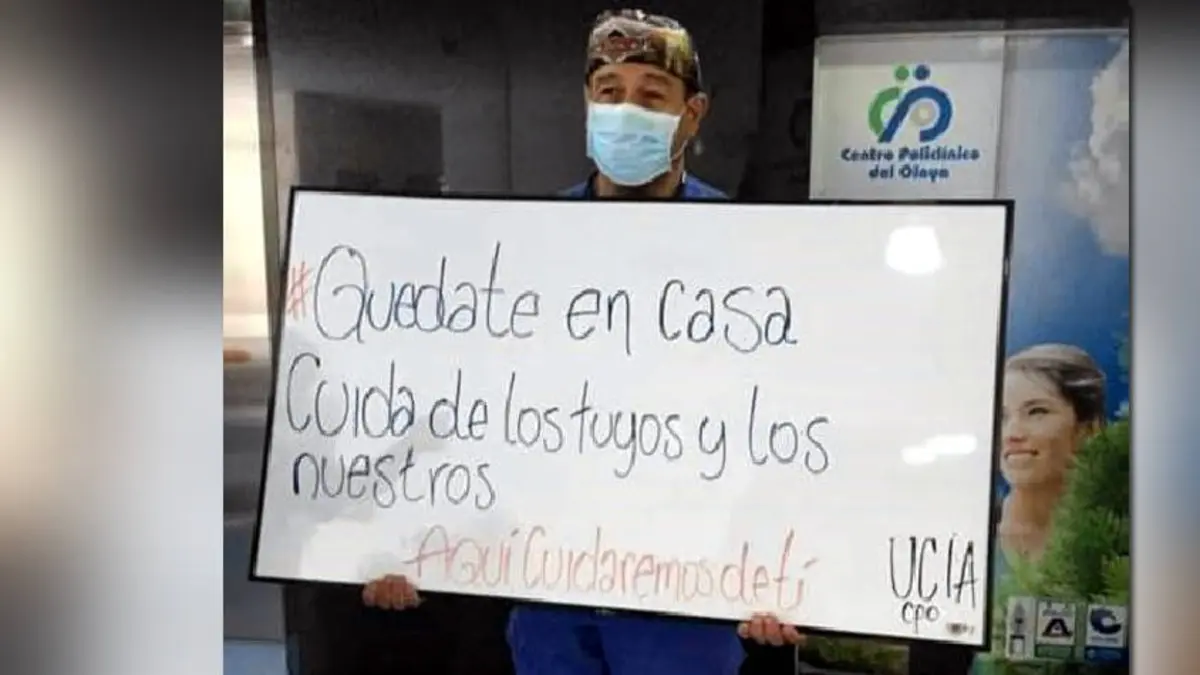 Centro Policlínico
del Olaya
#Quedate en casa
Cuida de los tuyos y los
nuestros
Aquí Cuidaremos de tí
UCIA
cpo